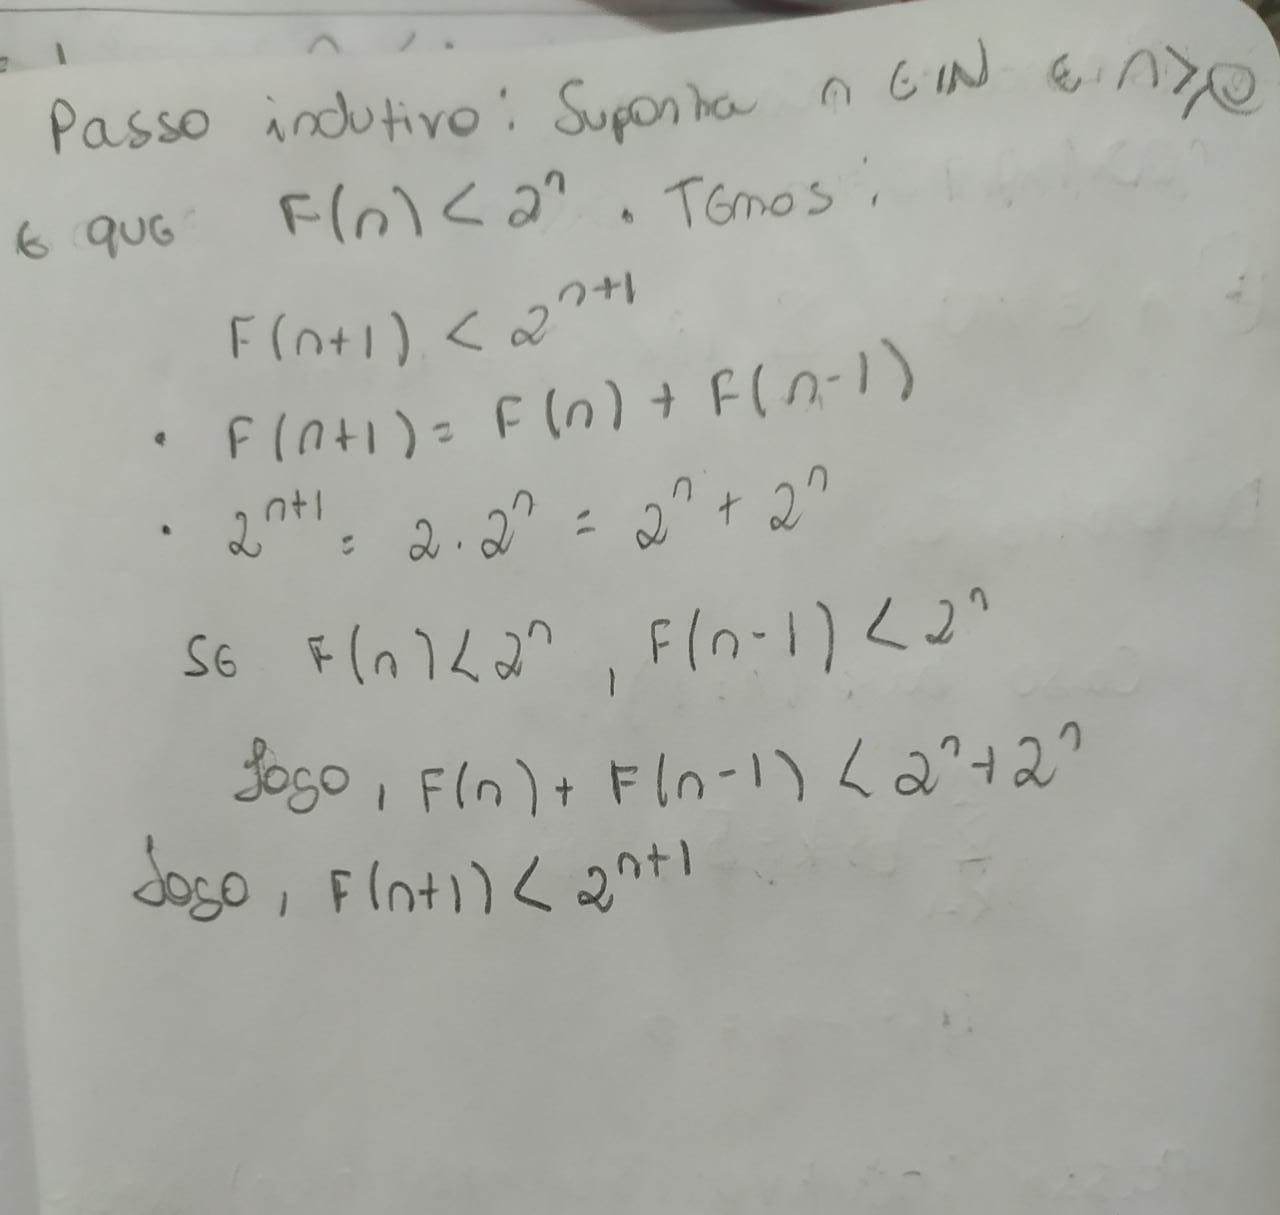 Passo indutivo: Suponha n ∈ IN e n ≥ 0
e que F(n) < 2^n. Temos:
F(n+1) < 2^{n+1}
• F(n+1) = F(n) + F(n-1)
• 2^{n+1} = 2 . 2^n = 2^n + 2^n
Se F(n) < 2^n, F(n-1) < 2^n
Logo, F(n) + F(n-1) < 2^n + 2^n
Logo, F(n+1) < 2^{n+1}